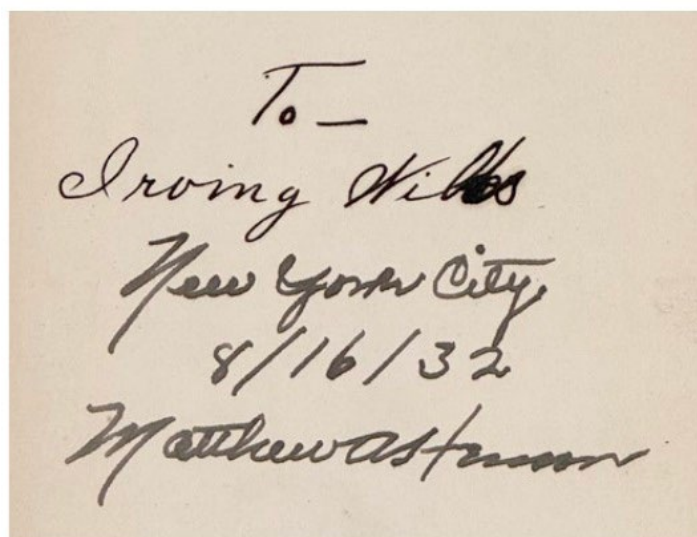 To—
Irving
New York City.
8/16/32
Matthew A Henson